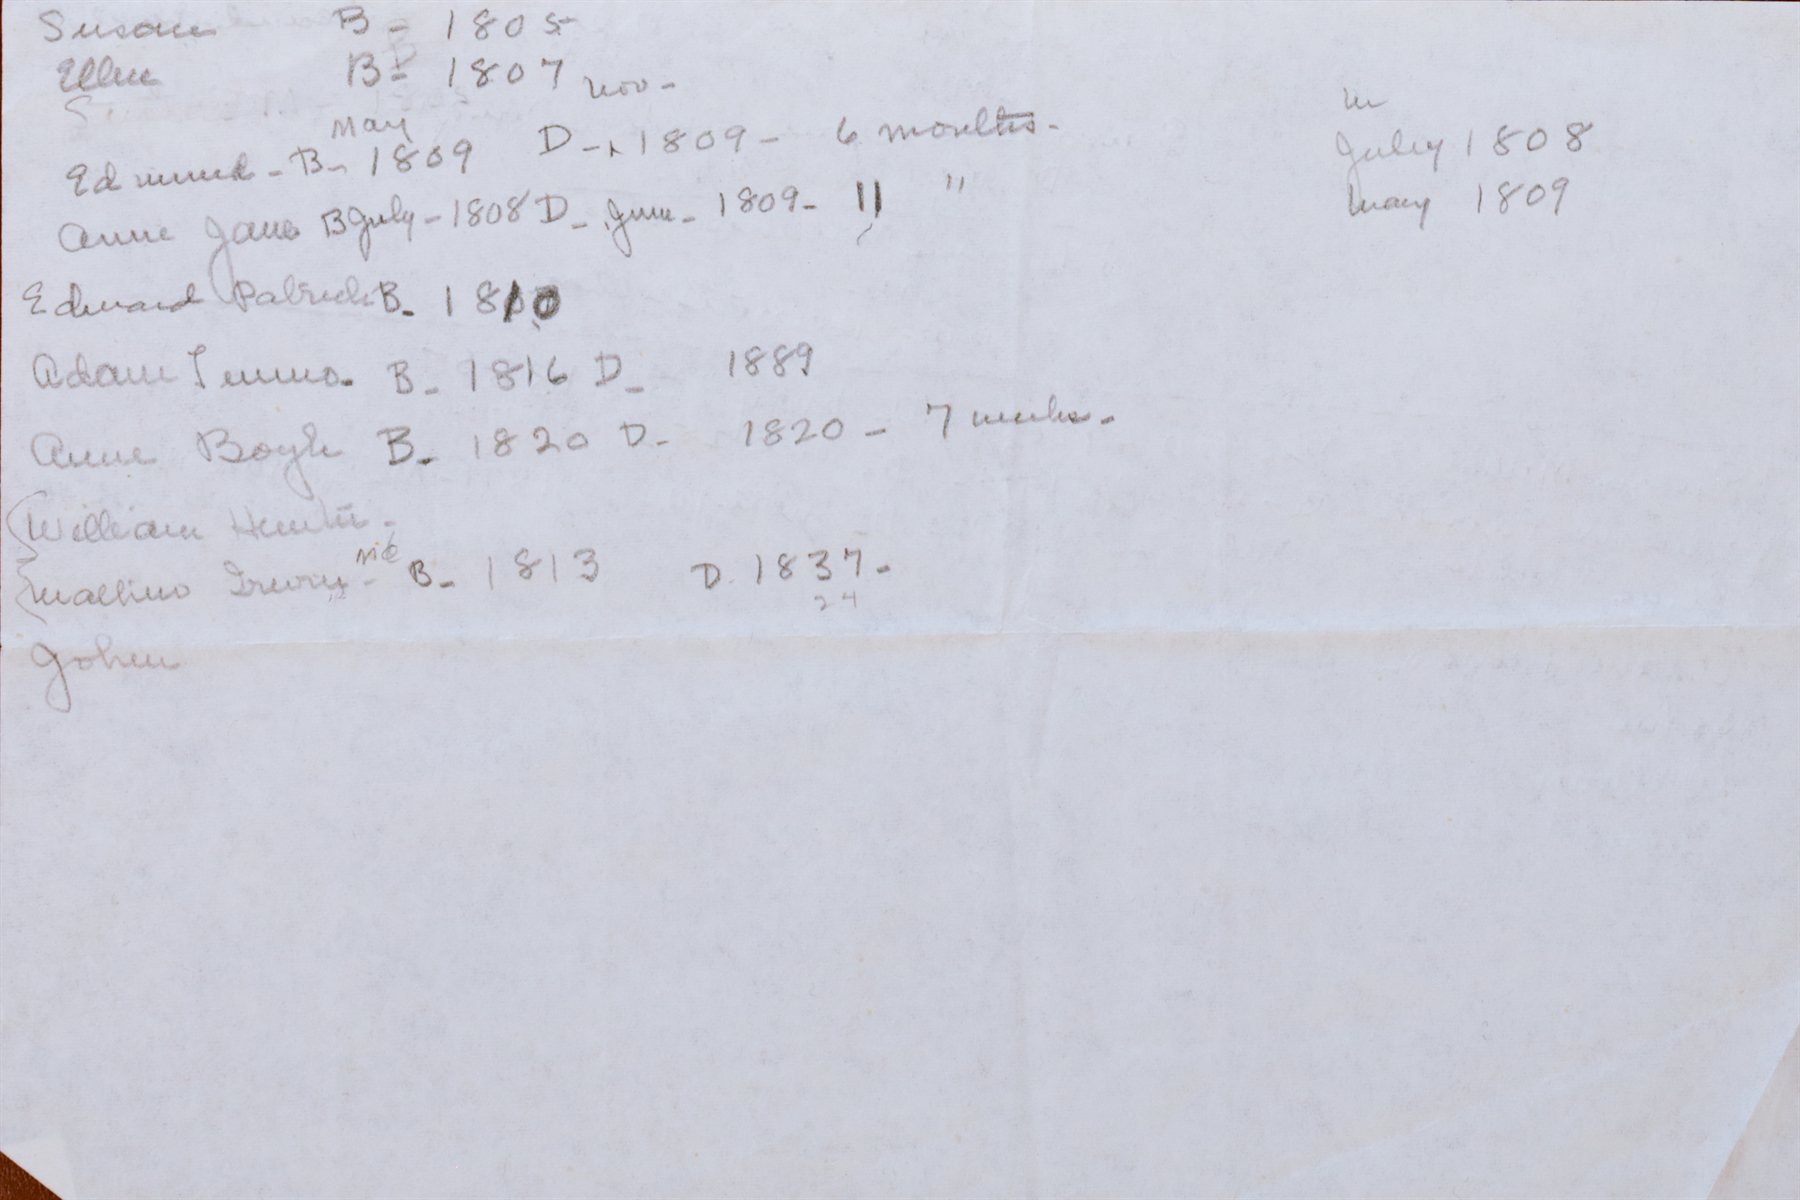 Susan B - 1805
Ellen B - 1807
nov -
May
Edmund - B - 1809 D - 1809 - 6 months -
Anne Jane B July - 1808 D - June - 1809 - 11 "
Edward Patrick B - 1810
Adam B - 1816 D - 1889
Anne Boyle B - 1820 D - 1820 - 7 weeks -
William Hunter -
B - 1813 D. 1837 -
24
John
m
July 1808
May 1809